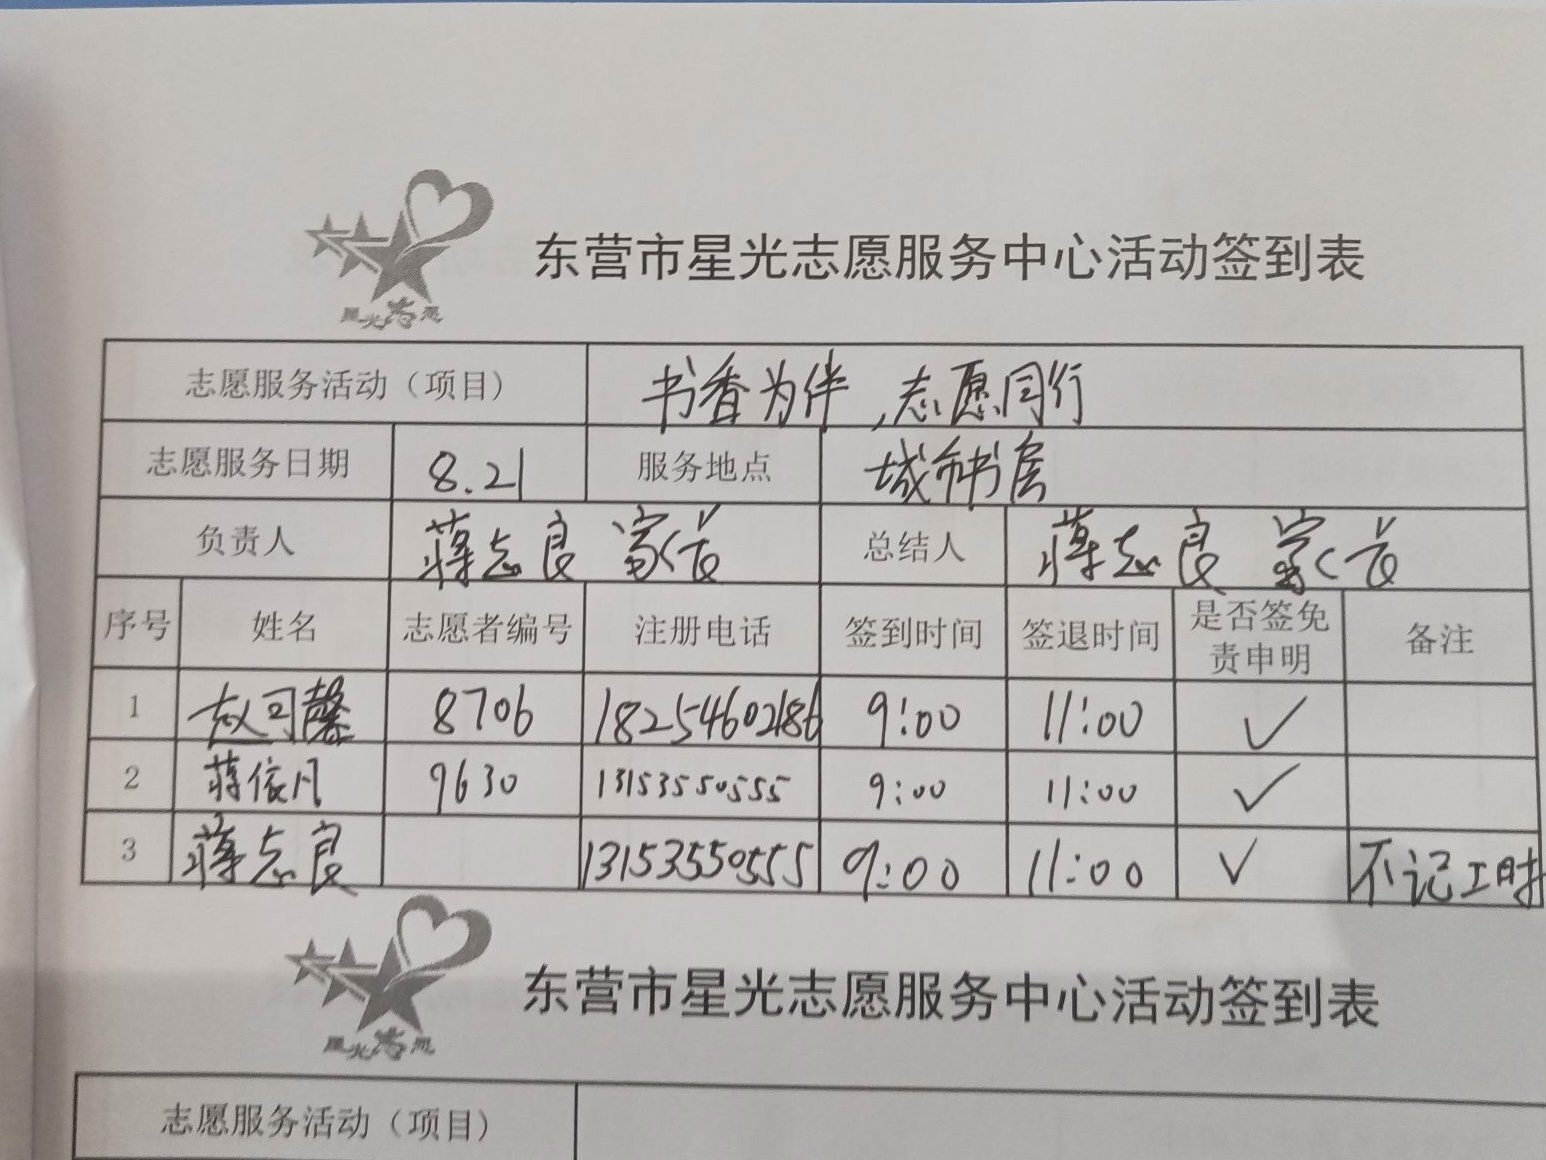 星光志愿
东营市星光志愿服务中心活动签到表
志愿服务活动（项目） 书香为伴,志愿同行
志愿服务日期 8.21 服务地点 城市书房
负责人 蒋志良 家长 总结人 蒋志良 家长
序号 姓名 志愿者编号 注册电话 签到时间 签退时间 是否签免责申明 备注
1 赵可馨 8706 18254602186 9:00 11:00 ✓
2 蒋依凡 9630 13153550555 9:00 11:00 ✓
3 蒋志良 13153550555 9:00 11:00 ✓ 不记工时
星光志愿
东营市星光志愿服务中心活动签到表
志愿服务活动（项目）